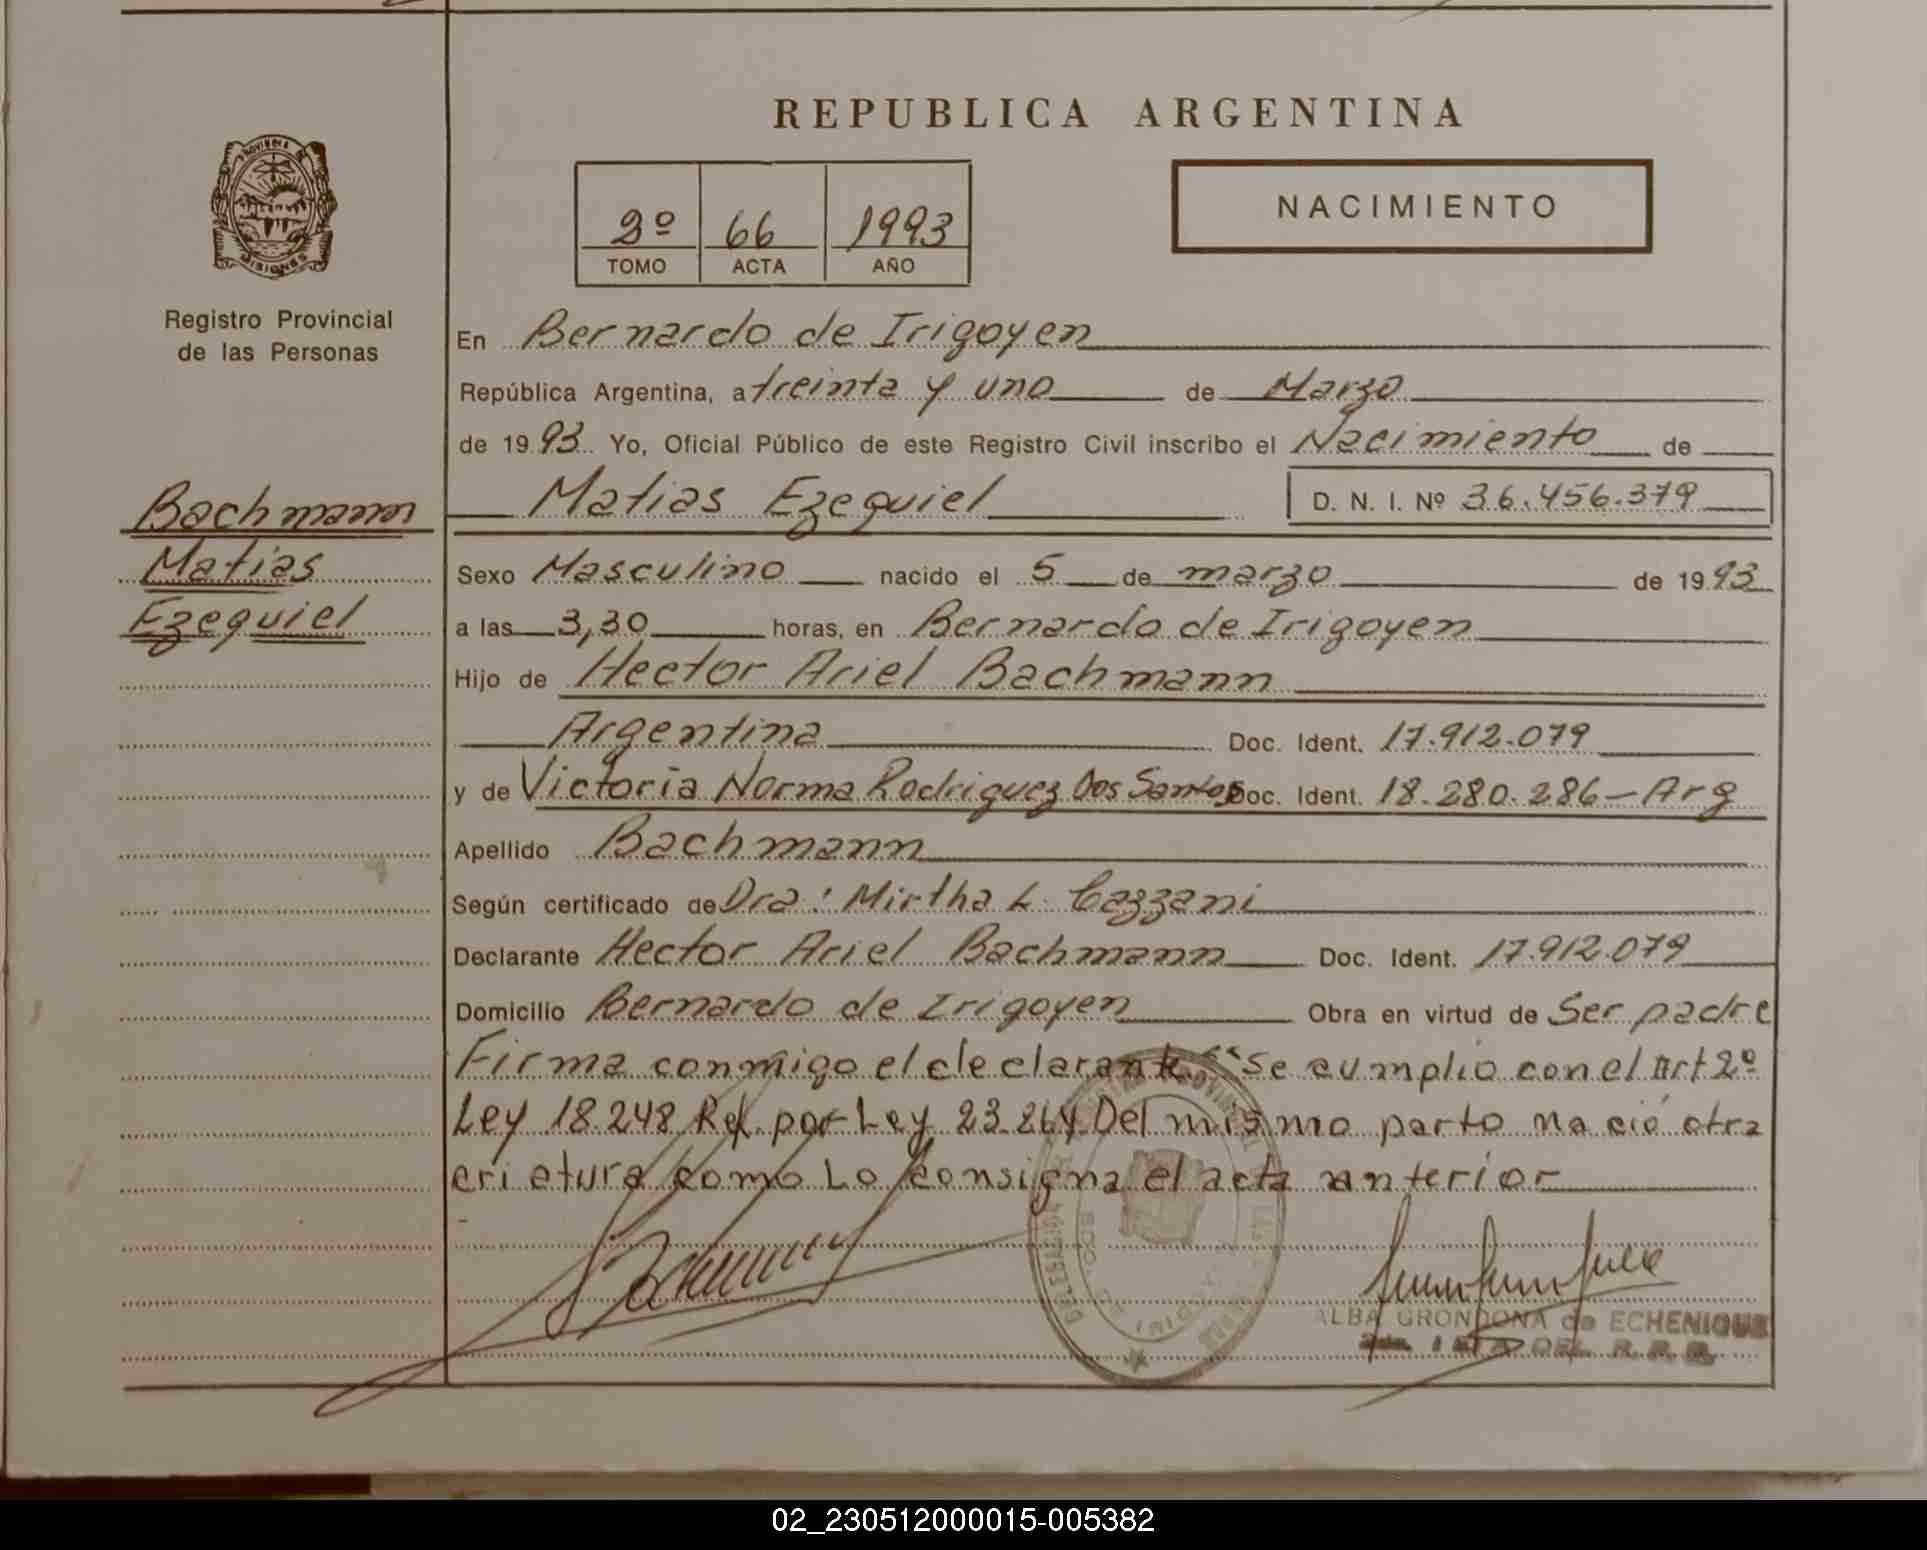 REPUBLICA ARGENTINA
PROVINCIA DE
MISIONES
Registro Provincial
de las Personas
2º 66 1993
TOMO ACTA AÑO
NACIMIENTO
En Bernardo de Irigoyen
República Argentina, a treinta y uno de Marzo
de 1993 Yo, Oficial Público de este Registro Civil inscribo el Nacimiento de
Matias Ezequiel D. N. I. Nº 36.456.379
Bachmann
Matias
Ezequiel
Sexo Masculino nacido el 5 de marzo de 1993
a las 3,30 horas, en Bernardo de Irigoyen
Hijo de Hector Ariel Bachmann
Argentina Doc. Ident. 17.912.079
y de Victoria Norma Rodriguez Dos Santos Doc. Ident. 18.280.286-Arg
Apellido Bachmann
Según certificado de Dra: Mirtha L. Cazzani
Declarante Hector Ariel Bachmann Doc. Ident. 17.912.079
Domicilio Bernardo de Irigoyen Obra en virtud de Ser padre
Firma conmigo el declarante "Se cumplio con el Art 2º
Ley 18.248 Ref. por Ley 23.264 Del mismo parto nació otra
criatura como Lo consigna el acta anterior
ALBA GRONDONA de ECHENIQUE
DEL R. P. P.
02_230512000015-005382